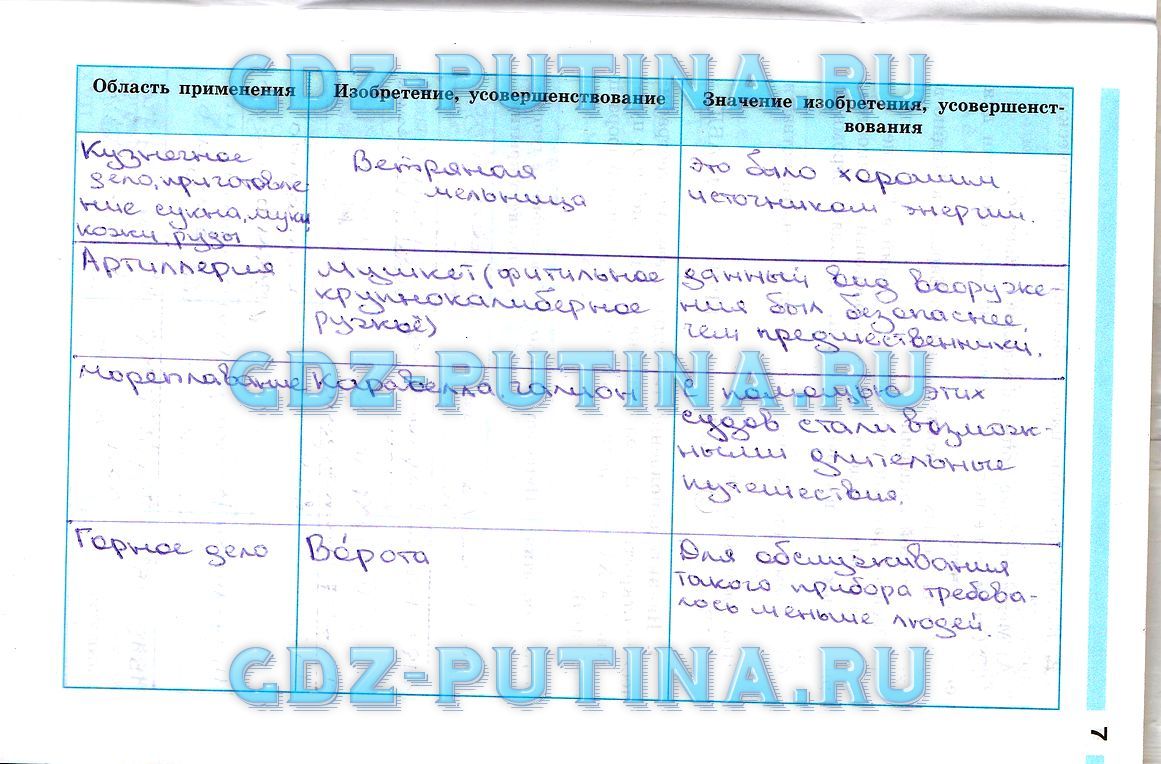 GDZ-PUTINA.RU
Область применения
Изобретение, усовершенствование
Значение изобретения, усовершенст-
вования
Кузнечное
дело, приготовле-
ние сукна, муки,
кожи, руды
Ветряная
мельница
это было хорошим
источником энергии.
Артиллерия
мушкет (фитильное
крупнокалиберное
ружьё)
данный вид вооруже-
ния был безопаснее,
чем предшественники.
GDZ-PUTINA.RU
Мореплавание
Каравелла, галион
с помощью этих
судов стали возмож-
ными длительные
путешествия.
Горное дело
Во́рота
Для обслуживания
такого прибора требова-
лось меньше людей.
GDZ-PUTINA.RU
7